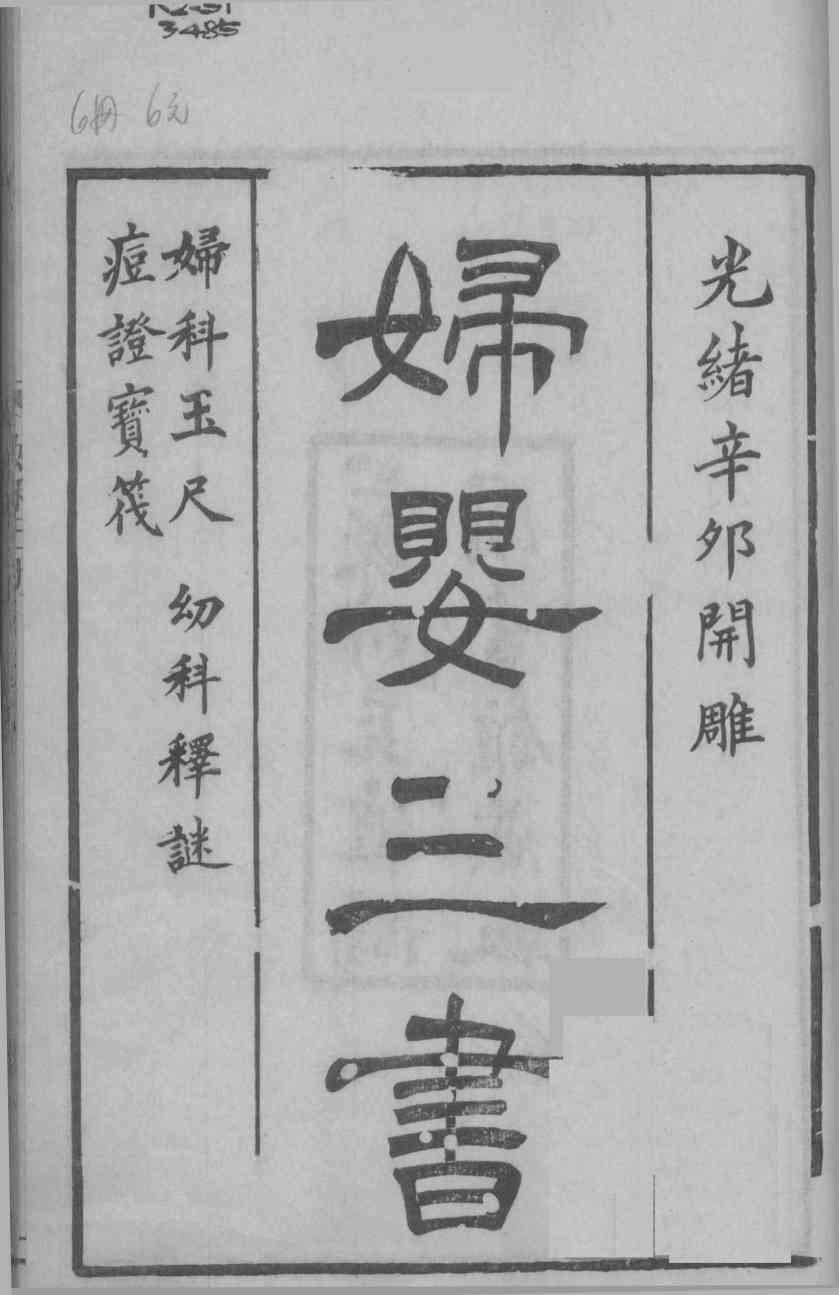 3485
6冊 6元
光緒辛夘開雕
婦嬰三書
婦科玉尺 幼科釋謎
痘證寶筏